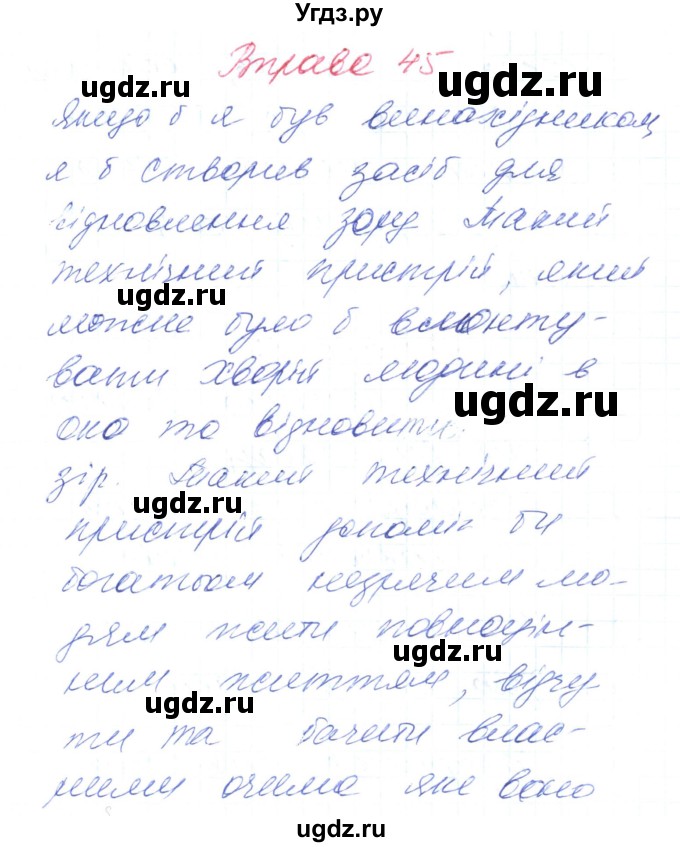 Угдз.ру
Вправа 45
ugdz.ru
Якщо б я був винахідником,
я б створив засіб для
ugdz.ru
відновлення зору. Такий
технічний пристрій, який
ugdz.ru
можна було б вмонту-
вати хворій людині в
ugdz.ru
око та відновити
зір. Такий технічний
ugdz.ru
пристрій допоміг би
ugdz.ru
багатьом незрячим лю-
дям жити повноцін-
ugdz.ru
ним життям, відчу
ugdz.ru
ти та бачити влас-
ними очима яке воно
ugdz.ru